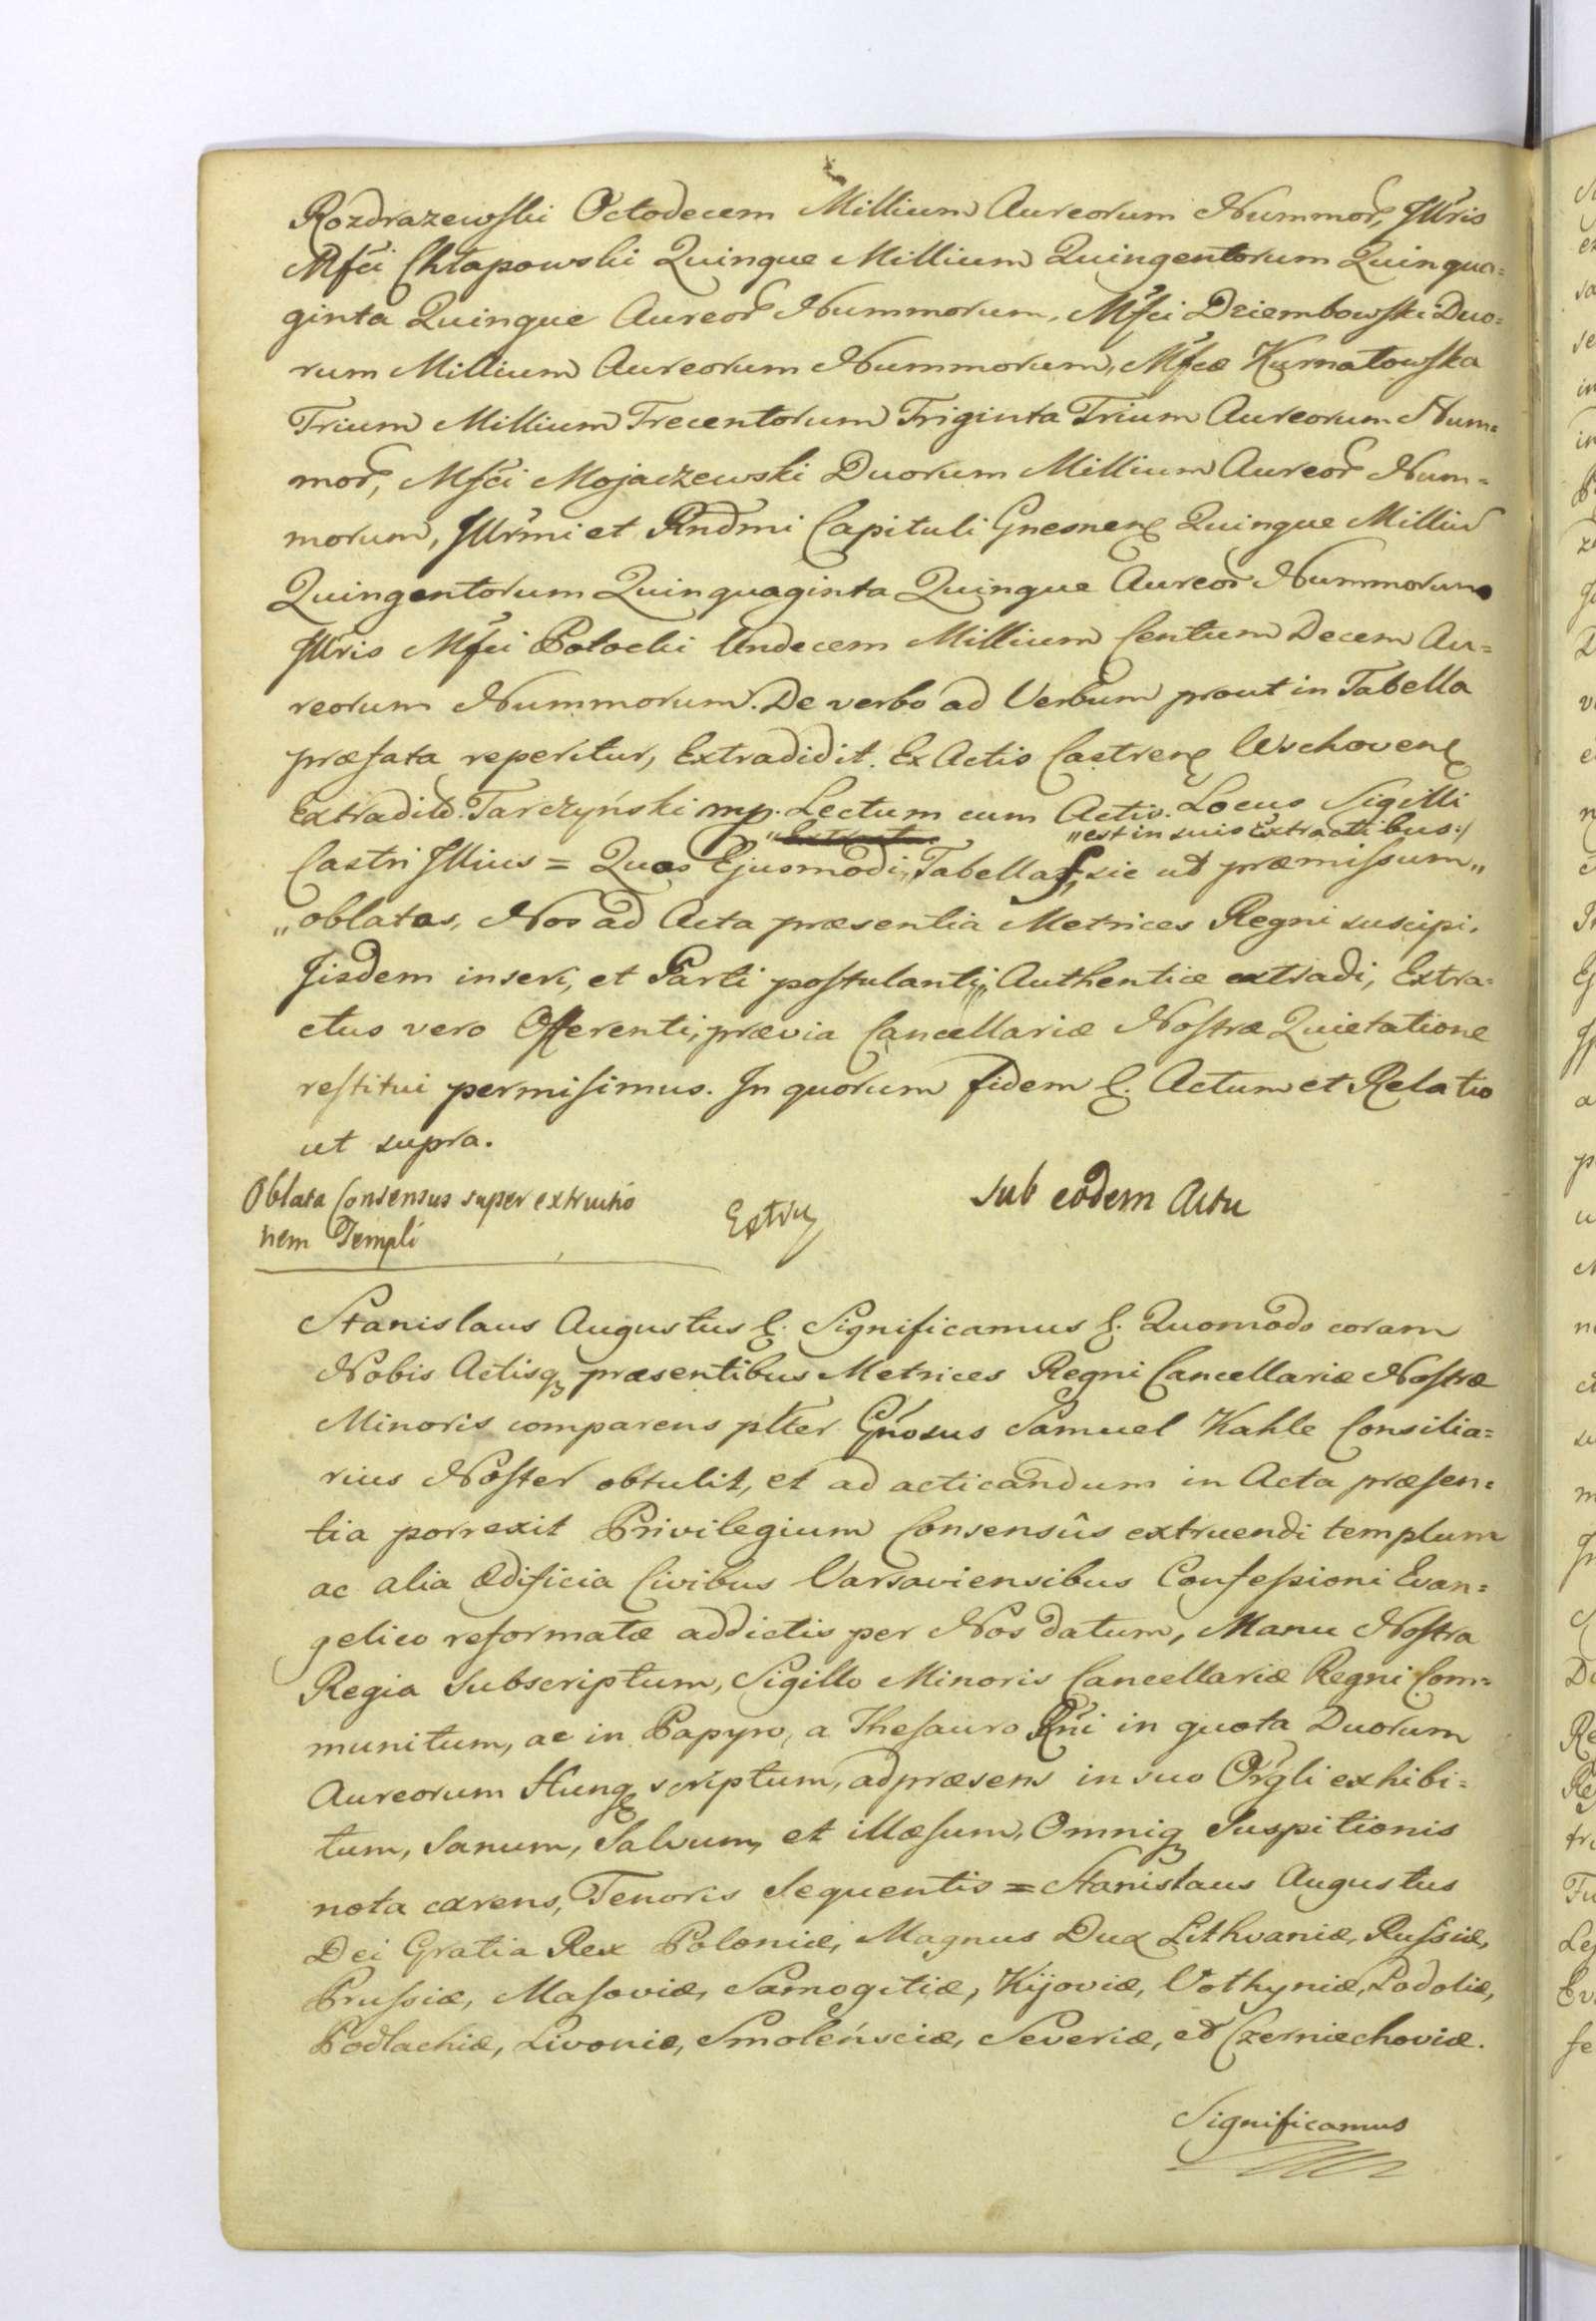 Rozdrazewski Octodecem Millium Aureorum Nummor, Illris
Mfci Chłapowski Quinque Millium Quingentorum Quinqua=
ginta Quinque Aureor Nummorum, Mfci Dziembowski Duo=
rum Millium Aureorum Nummorum, Mfcæ Kurnatowska
Trium Millium Trecentorum Triginta Trium Aureorum Num=
mor, Mfci Mojaczewski Duorum Millium Aureor Num=
morum, Illrmi et Rndmi Capituli Gnesnen Quinque Milliu
Quingentorum Quinquaginta Quinque Aureor Nummorum
Illris Mfci Potocki Undecem Millium Centum Decem Au=
reorum Nummorum. De verbo ad Verbum prout in Tabella
præfata reperitur, Extradidit. Ex Actis Castren Wschoven
Extradit. Tarczyński mp. Lectum cum Actis. Locus Sigilli
"est in suis Extractibus:/
Castri Illius = Quas Ejusmodi " Tabellas, sic ut præmissum "
" oblatas, Nos ad Acta præsentia Metrices Regni suscipi,
Iisdem inseri, et Parti postulanti " Authentice extradi, Extra=
ctus vero Offerenti, prævia Cancellariæ Nostræ Quietatione
restitui permisimus. In quorum fidem &. Actum et Relatio
ut supra.
Oblata Consensus super extructio
nem Templi
Extr
sub eodem Actu
Stanislaus Augustus &. Significamus &. Quomodo coram
Nobis Actisq præsentibus Metrices Regni Cancellariæ Nostræ
Minoris comparens plter Gnosus Samuel Kahle Consilia=
rius Noster obtulit, et ad acticandum in Acta præsen=
tia porrexit Privilegium Consensûs extruendi templum
ac alia Ædificia Civibus Varsaviensibus Confessioni Evan=
gelico reformatæ addictis per Nos datum, Manu Nostra
Regia Subscriptum, Sigillo Minoris Cancellariæ Regni Com=
munitum, ac in Papyro, a Thesauro Rni in quota Duorum
Aureorum Hung scriptum, ad præsens in suo Orgli exhibi=
tum, Sanum, Salvum, et illæsum, Omniq Suspitionis
nota carens, Tenoris Sequentis = Stanislaus Augustus
Dei Gratia Rex Poloniæ, Magnus Dux Lithvaniæ, Russiæ,
Prussiæ, Masoviæ, Samogitiæ, Kijoviæ, Volhyniæ, Podoliæ,
Podlachiæ, Livoniæ, Smoleńsciæ, Severiæ, et Czerniechoviæ.
Significamus